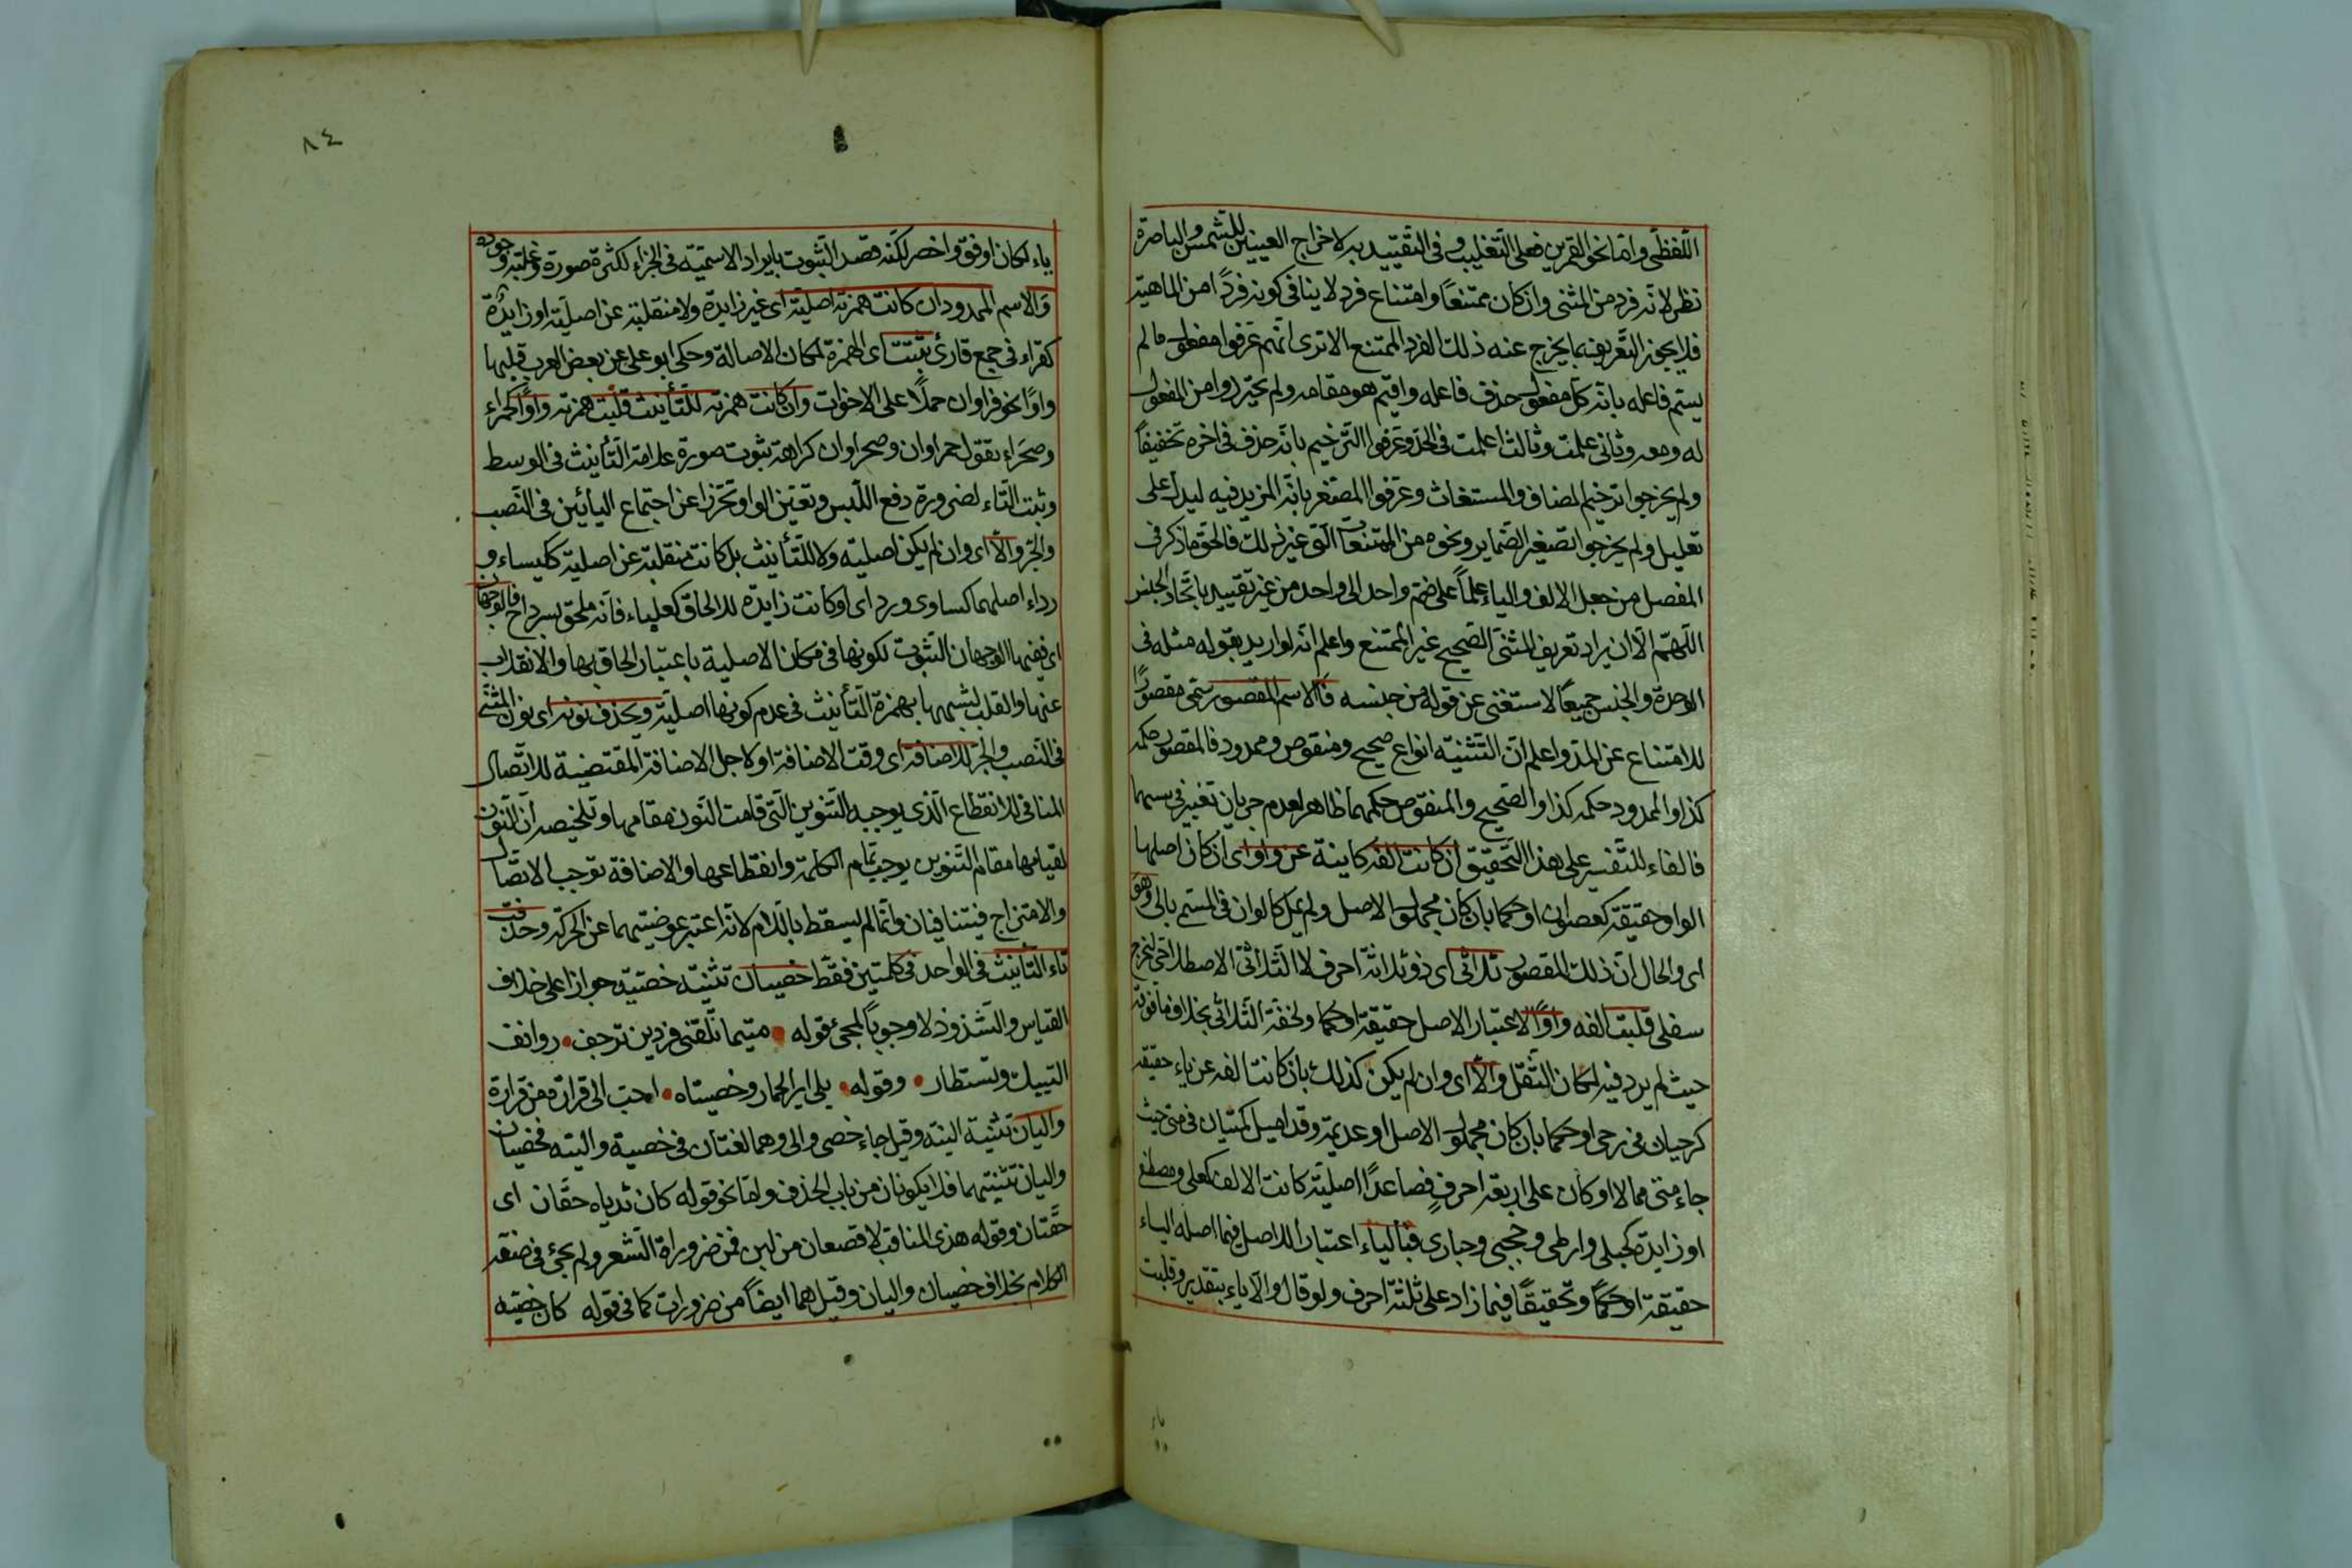 اللّفظى وامّا نحو القمرين فعلى التّغليب وفى التّقييد به لاخراج العينين للشّمس والباصرة
نظر لانّه فرد من المثنى وان كان ممتنعًا وامتناع فرد لا ينافى كونه فردًا من الماهية
فلا يجوز التّعريف بما يخرج عنه ذلك الفرد الممتنع الا ترى انّهم عرفوا مفعول ما لم
يسمّ فاعله بانّه كلّ مفعول حذف فاعله واقيم هو مقامه ولم يحترزوا من المفعول
له ومعه وثانى علمت وثالث اعلمت فى الحدّ وعرفوا التّرخيم بانّه حذف فى اخره تخفيفًا
ولم يخرجوا ترخيم المضاف والمستغاث وعرفوا المصغّر بانّه المزيد فيه ليدلّ على
تعليل ولم يخرجوا تصغير الضّماير ونحوه من الممتنعات الى غير ذلك فالحق ما ذكر فى
المفصل من جعل الالف والياء علمًا على ضمّ واحد الى واحد من غير تقييد باتّحاد الجنس
اللّهمّ الّا ان يراد تعريف المثنّى الصّحيح غير الممتنع واعلم انّه لو اريد بقوله مثله فى
الوحدة والجنس جميعًا لاستغنى عن قوله من جنسه فالاسم المقصور سمّى مقصورًا
للامتناع عن المدّ واعلم انّ التّثنية انواع صحيح ومنقوص وممدود فالمقصور حكمه
كذا والممدود حكمه كذا والصّحيح والمنقوص حكمهما ظاهر لعدم جريان تغيير فى بسهما
فالفاء للتّفسير على هذا التّحقيق ان كانت الفه كاينة عن واو اى ان كان اصلها
الواو حقيقة كعصوان او حكما بان كان مجهول الاصل ولم يمل كالوان فى المسمّ بالى وهو
اى والحال انّ ذلك المقصور ثلاثى اى ذو ثلاثة احرف لا الثّلاثى الاصطلاحى ليخرج
سفلى قلبت الفه واوًا لاعتبار الاصل حقيقة او حكما ولخفّة الثّلاثى بخلاف ما فوقه
حيث لم يرد فيه لمكان الثّقل والّا اى وان لم يكن كذلك بان كانت الفه عن ياء حقيقة
كرحيان فى رحى او حكما بان كان مجهول الاصل او عديمة وقد اميل كمتيان فى متى حيث
جاء متى ممالا او كان على اربعة احرفٍ فصاعدًا اصليّة كانت الالف كعلى ومصطفى
او زايدة كحبلى وارطى وجحجبى وحبارى فبالياء اعتبارًا للاصل فيما اصله الياء
حقيقة او حكمًا وتحقيقًا فيما زاد على ثلثة احرف ولو قال والّا ياء بتقدير وقلبت
ياء
٨٤
ياء لكان اوفق واخصر لكنّه قصد الثّبوت بايراد الاسميّة فى الجزاء لكثرة صورة وغلبة وجوده
وَالاسم الممدود ان كانت همزته اصليّة اى غير زايدة ولا منقلبة عن اصليّة او زايدة
كقراء فى جمع قارئ تثبت اى الهمزة لمكان الاصالة وحكى ابو على عن بعض العرب قلبها
واوًا نحو قراوان حملًا على الاخوات وان كانت همزته للتّأنيث قلبت همزته واوًا كحمراء
وصحَراء تقول حمراوان وصحراوان كراهة ثبوت صورة علامة التّأنيث فى الوسط
وثبت التّاء لضرورة دفع اللّبس وتعيّن الواو تحرّزا عن اجتماع اليائين فى النّصب
والجرّ والّا اى وان لم يكن اصليه ولا للتّأنيث بل كانت منقلبة عن اصليّة ككساء و
رداء اصلهما كساو ورداى او كانت زايدة للالحاق كعلباء فانّه ملحق بسرداح فالوجهان
اى ففيها الوجهان الثّبوت لكونها فى مكان الاصلية باعتبار الحاق بها والانقلاب
عنها والقلب لشبهها بهمزة التّأنيث فى عدم كونها اصليّة ويحذف نونه اى نون المثنّى
فى النّصب والجرّ للاضافة اى وقت الاضافة او لاجل الاضافة المقتضية للاتّصال
المنافى للانقطاع الّذى يوجبه التّنوين الّتى قامت النّون مقامها وتلخيصه انّ النّون
لقيامها مقام التّنوين يوجب تمام الكلمة وانقطاعها والاضافة توجب الاتّصال
والامتزاج فيتنافيان وانّما لم يسقط باللّام لانّه اعتبر عوضيتهما عن الحركة وحذفت
تاء التّأنيث فى الواحد فى كلمتين فقط خصيان تثنية خصية جوازا على خلاف
القياس والشّذوذ لا وجوبًا لمجئ قوله متيما تلقنى فردين ترجف روانف
التييك وتستطار وقوله بلى اير الحمار وخصيتاه احبّ الى قزارة من قزارة
والیان تثنية الية وقيل جاء خصى والى وهما لغتان فى خصية والية فخصيان
والیان تثنيتهما فلا يكونان من باب الحذف وامّا نحو قوله كان ثدياه حقّان اى
حقّتان وقوله هذى المناقب لا قصعان من لبن فمن ضرورة الشّعر ولم يجئ فى ضفه
الكلام بخلاف خصيان والیان وقيل هما ايضًا من ضرورات كما فى قوله كان خصيه